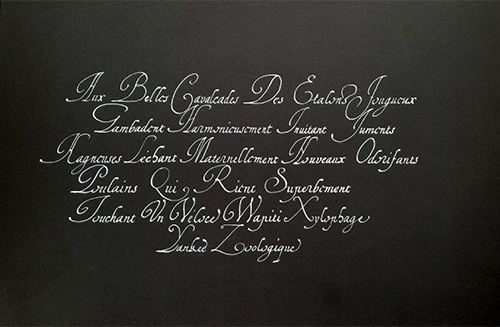 Aux Belles Cavalcades Des Etalons Fougueux
Gambadent Harmonieusement Inuitant Juments
Kagneuses Léchant Maternellement Nouveaux Odorifants
Poulains Qui, Rient Superbement
Touchant Vn Véloce Wapiti Xylophage
Yankee Zoologique